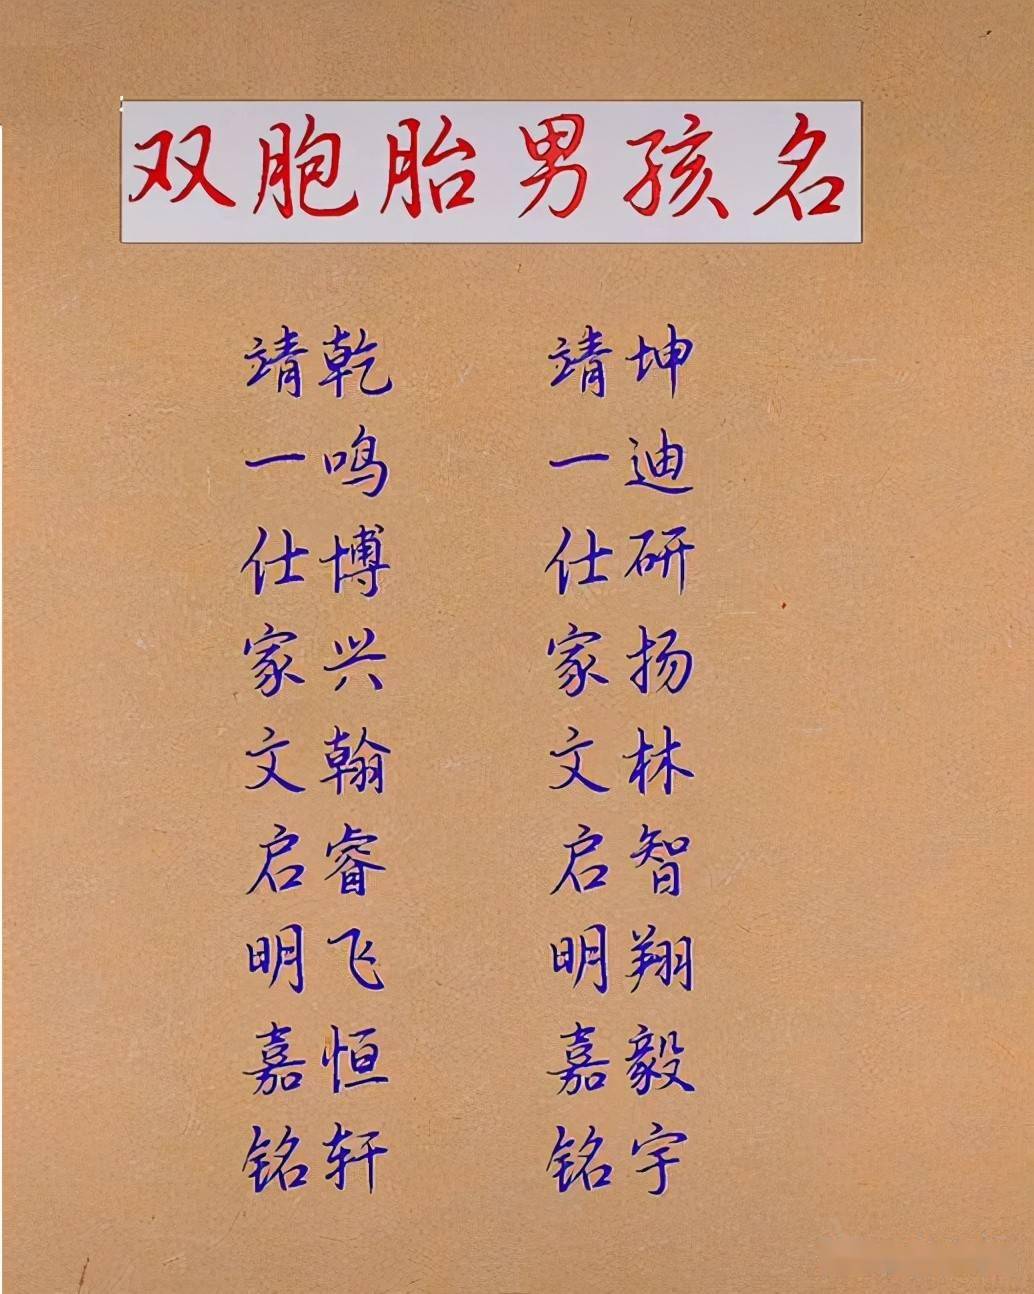 双胞胎男孩名
靖乾 靖坤
一鸣 一迪
仕博 仕研
家兴 家扬
文翰 文林
启睿 启智
明飞 明翔
嘉恒 嘉毅
铭轩 铭宇